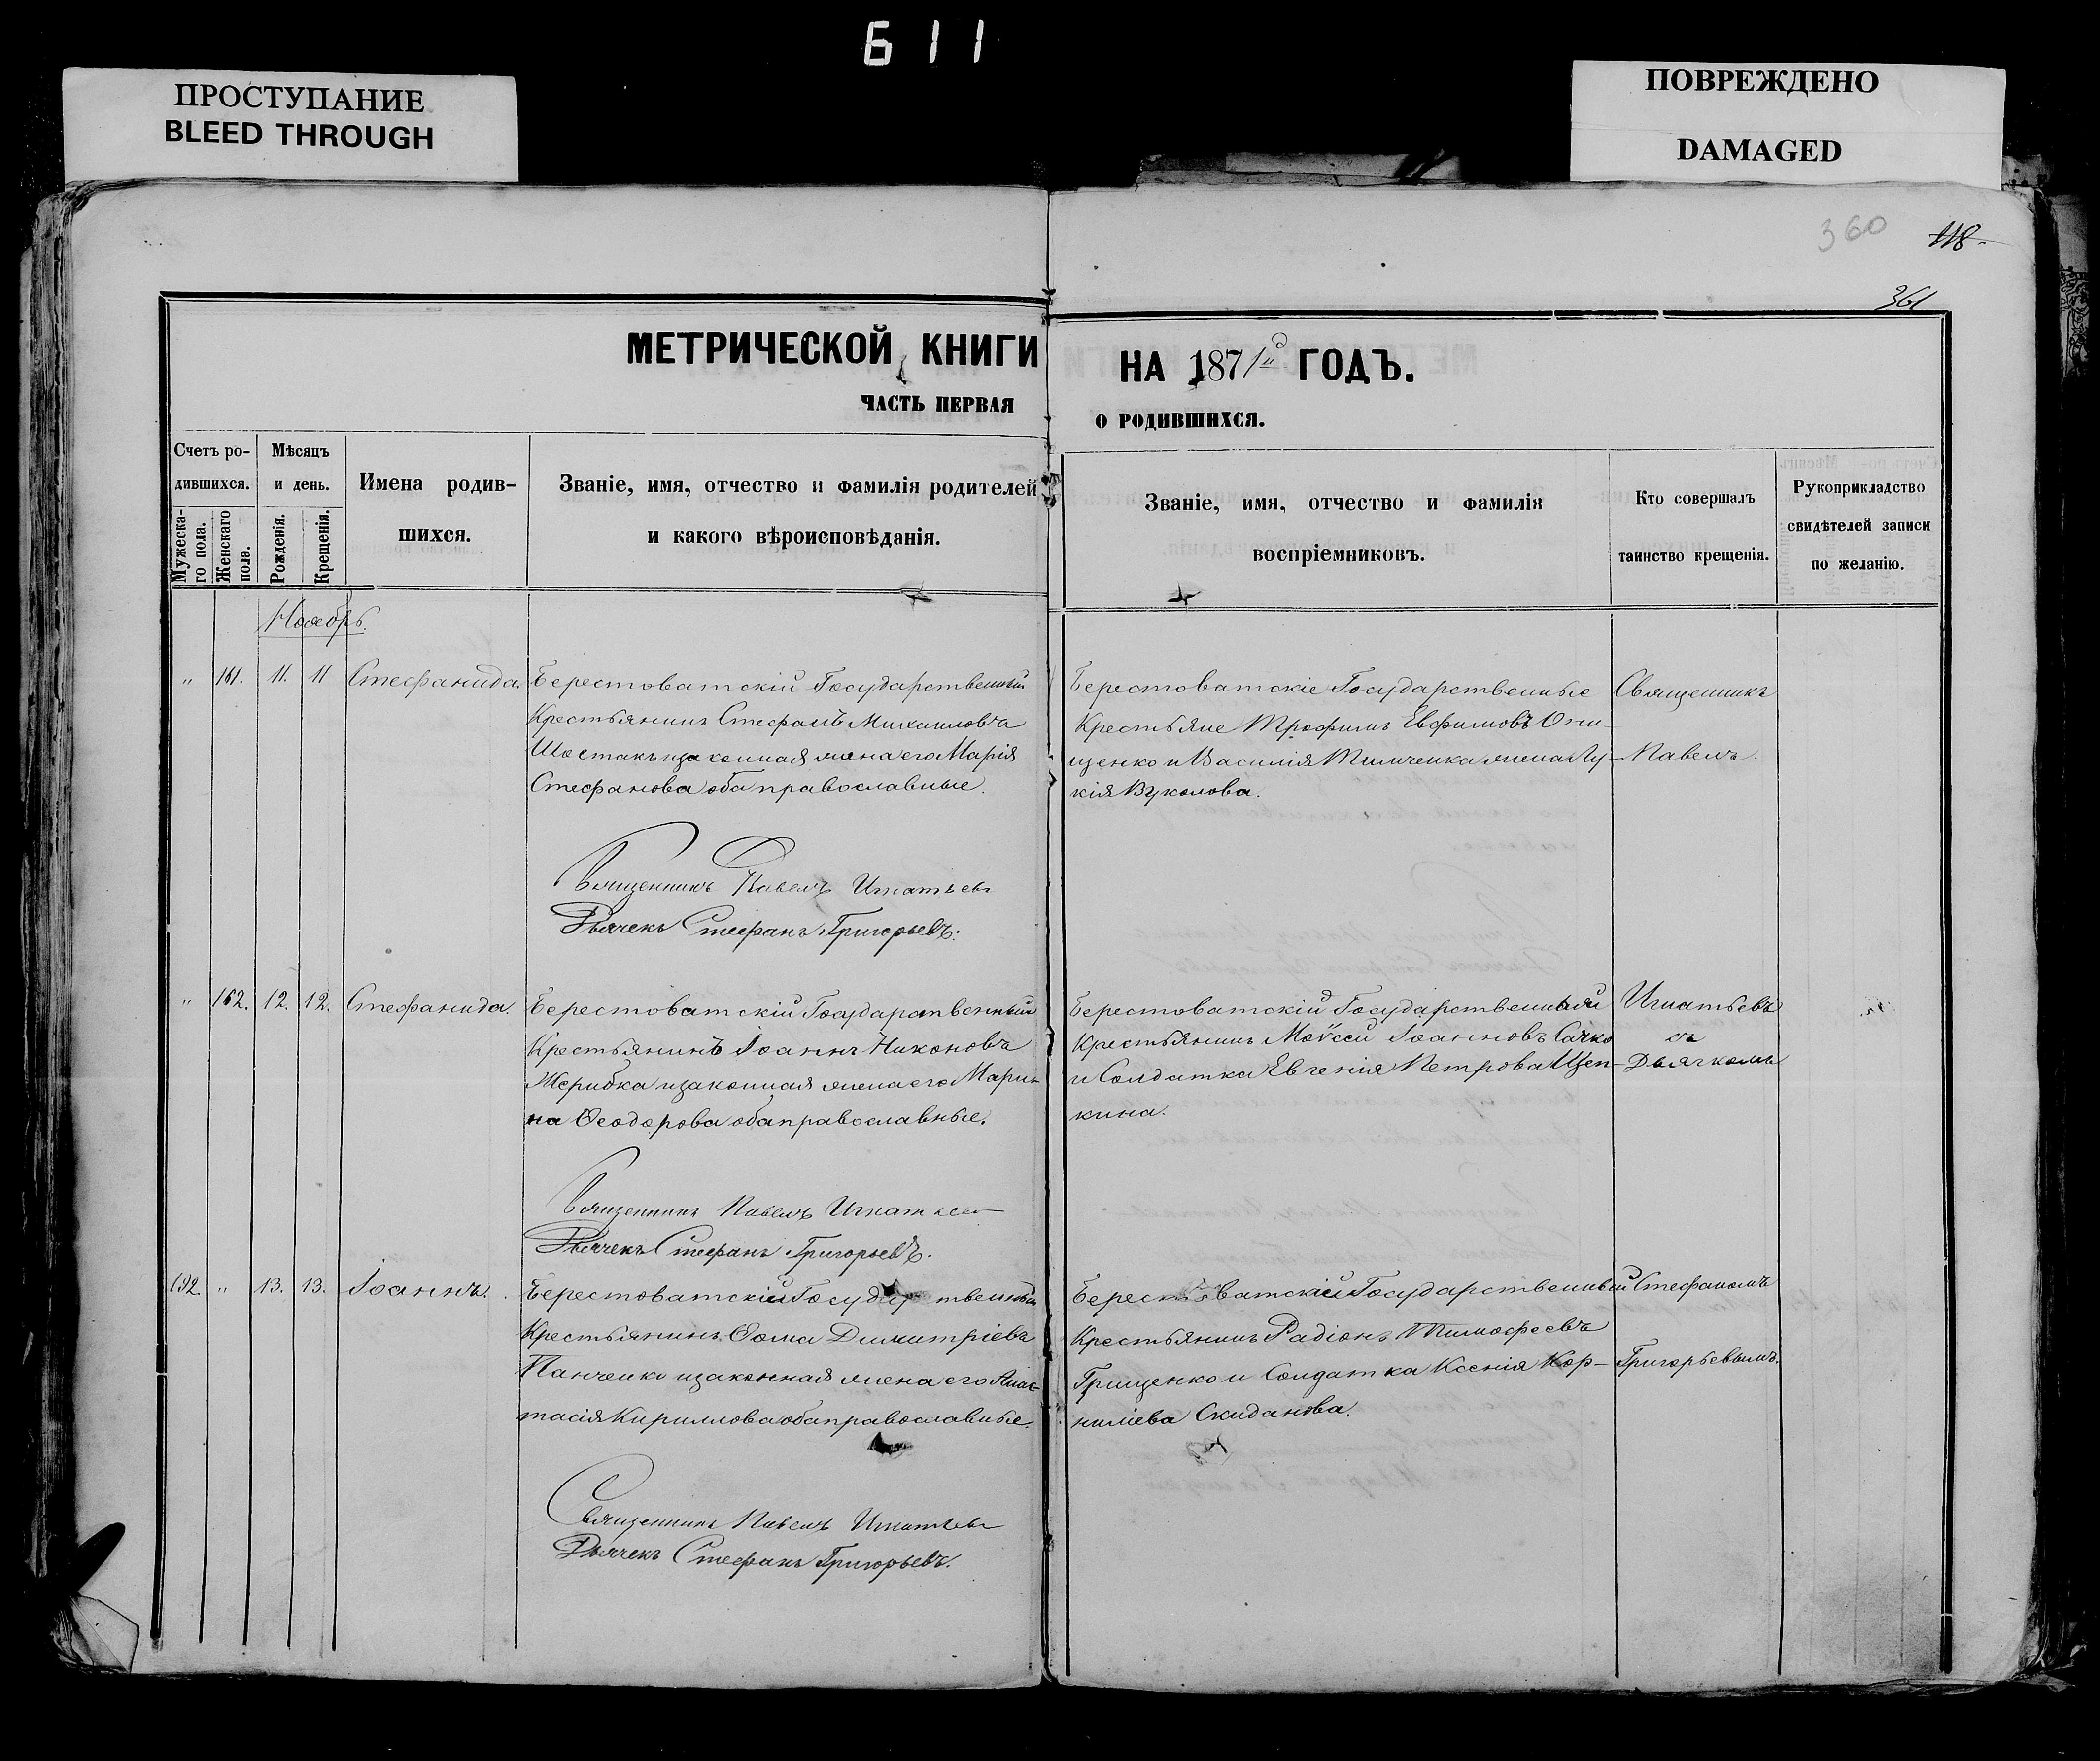 611
ПРОСТУПАНИЕ
BLEED THROUGH
ПОВРЕЖДЕНО
DAMAGED
360
118
361
МЕТРИЧЕСКОЙ КНИГИ НА 1871й ГОДЪ.
ЧАСТЬ ПЕРВАЯ О РОДИВШИХСЯ.
Счетъ ро-
дившихся.
Мужеска-
го пола.
Женскаго
пола.
Мѣсяцъ
и день.
Рожденія.
Крещенія.
Имена родив-
шихся.
Званіе, имя, отчество и фамилія родителей
и какого вѣроисповѣданія.
Званіе, имя, отчество и фамилія
воспріемниковъ.
Кто совершалъ
таинство крещенія.
Рукоприкладство
свидѣтелей записи
по желанію.
Ноябрь.
" 161. 11. 11 Стефанида.
Берестоватскій Государственный
Крестьянинъ Стефанъ Михаиловъ
Шостакъ и законная жена его Марія
Стефанова оба православные.
Берестоватскіе Государственные
Крестьяне Трофимъ Евфимовъ Они-
щенко и Василія Тимченка жена Лу-
кія Вуколова.
Священникъ
Павелъ
Священникъ Павелъ Игнатьевъ
Дьячекъ Стефанъ Григорьевъ.
" 162. 12. 12. Стефанида.
Берестоватскій Государственный
Крестьянинъ Іоаннъ Никоновъ
Жерибка и законная жена его Мари-
на Ѳеодорова оба православные.
Берестоватскій Государственный
Крестьянинъ Моѵсей Іоанновъ Сачко
и Солдатка Евгенія Петрова Щеп-
кина.
Игнатьевъ
съ
Дьячкомъ
Священникъ Павелъ Игнатьевъ
Дьячекъ Стефанъ Григорьевъ.
192. " 13. 13. Іоаннъ.
Берестоватскій Государственный
Крестьянинъ Ѳома Димитріевъ
Панченко и законная жена его Анас-
тасія Кириллова оба православные.
Берестоватскій Государственный
Крестьянинъ Радіонъ Тимофеевъ
Грищенко и Солдатка Ксенія Кор-
ниліева Скиданова.
Стефаномъ
Григорьевымъ.
Священникъ Павелъ Игнатьевъ
Дьячекъ Стефанъ Григорьевъ.